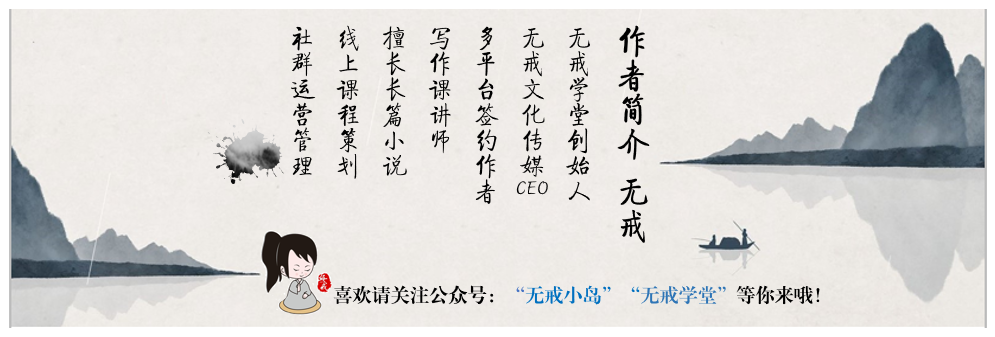 作者简介 无戒
无戒学堂创始人
无戒文化传媒CEO
多平台签约作者
写作课讲师
擅长长篇小说
线上课程策划
社群运营管理
喜欢请关注公众号：“无戒小岛”“无戒学堂”等你来哦!